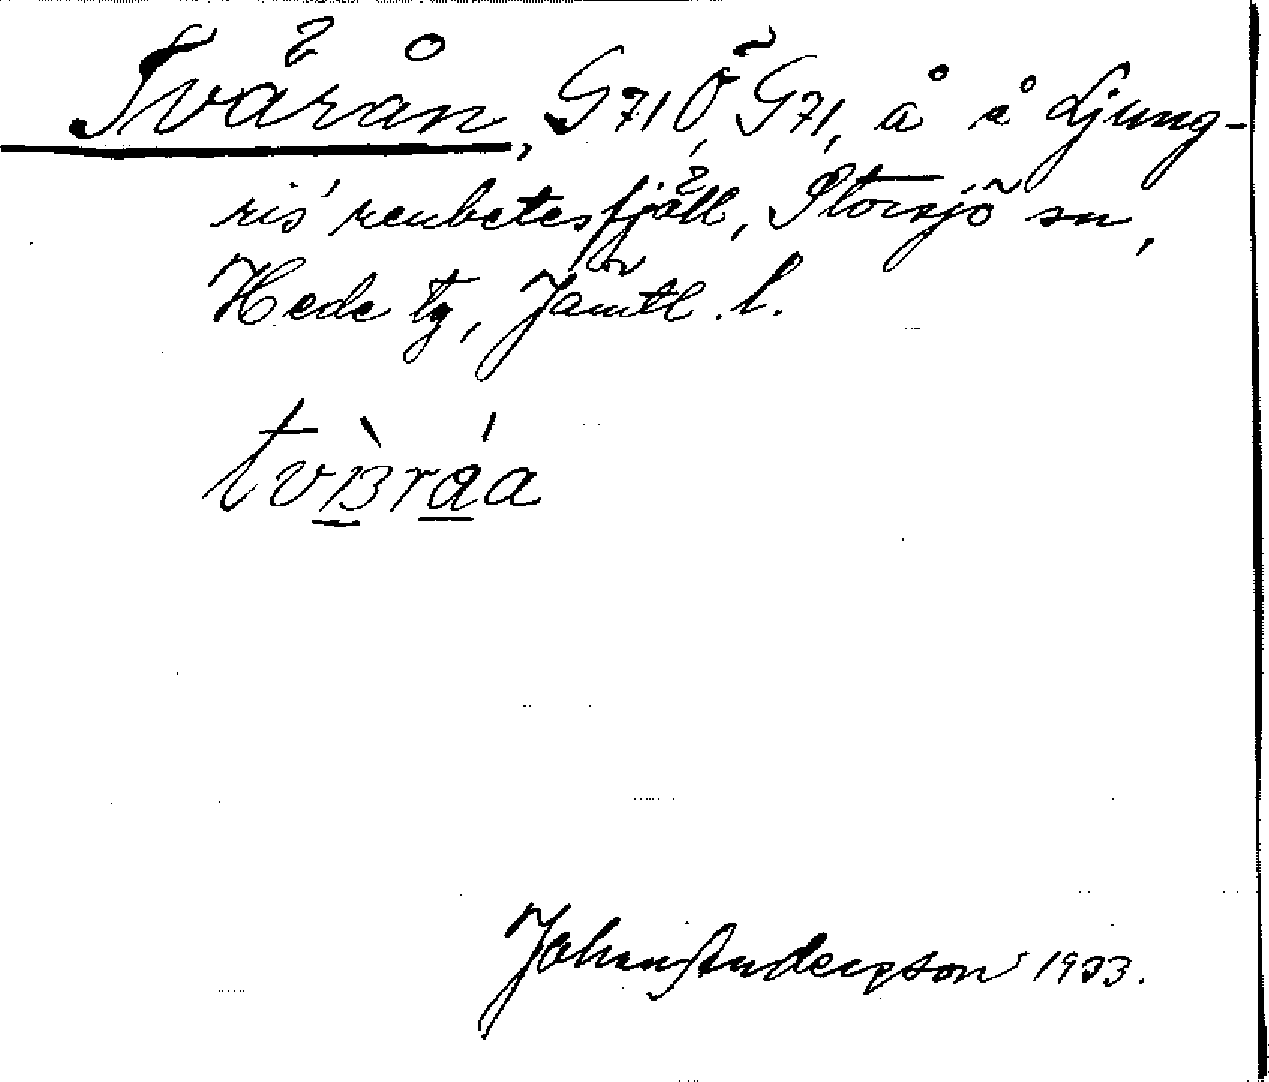 Tvärån, G71Ö, G71, å å Ljung-
ris renbetesfjäll, Storsjö sn,
Hede tg, Jämtl. l.
tvɜ̀ráa
Johan Andersson 1933.